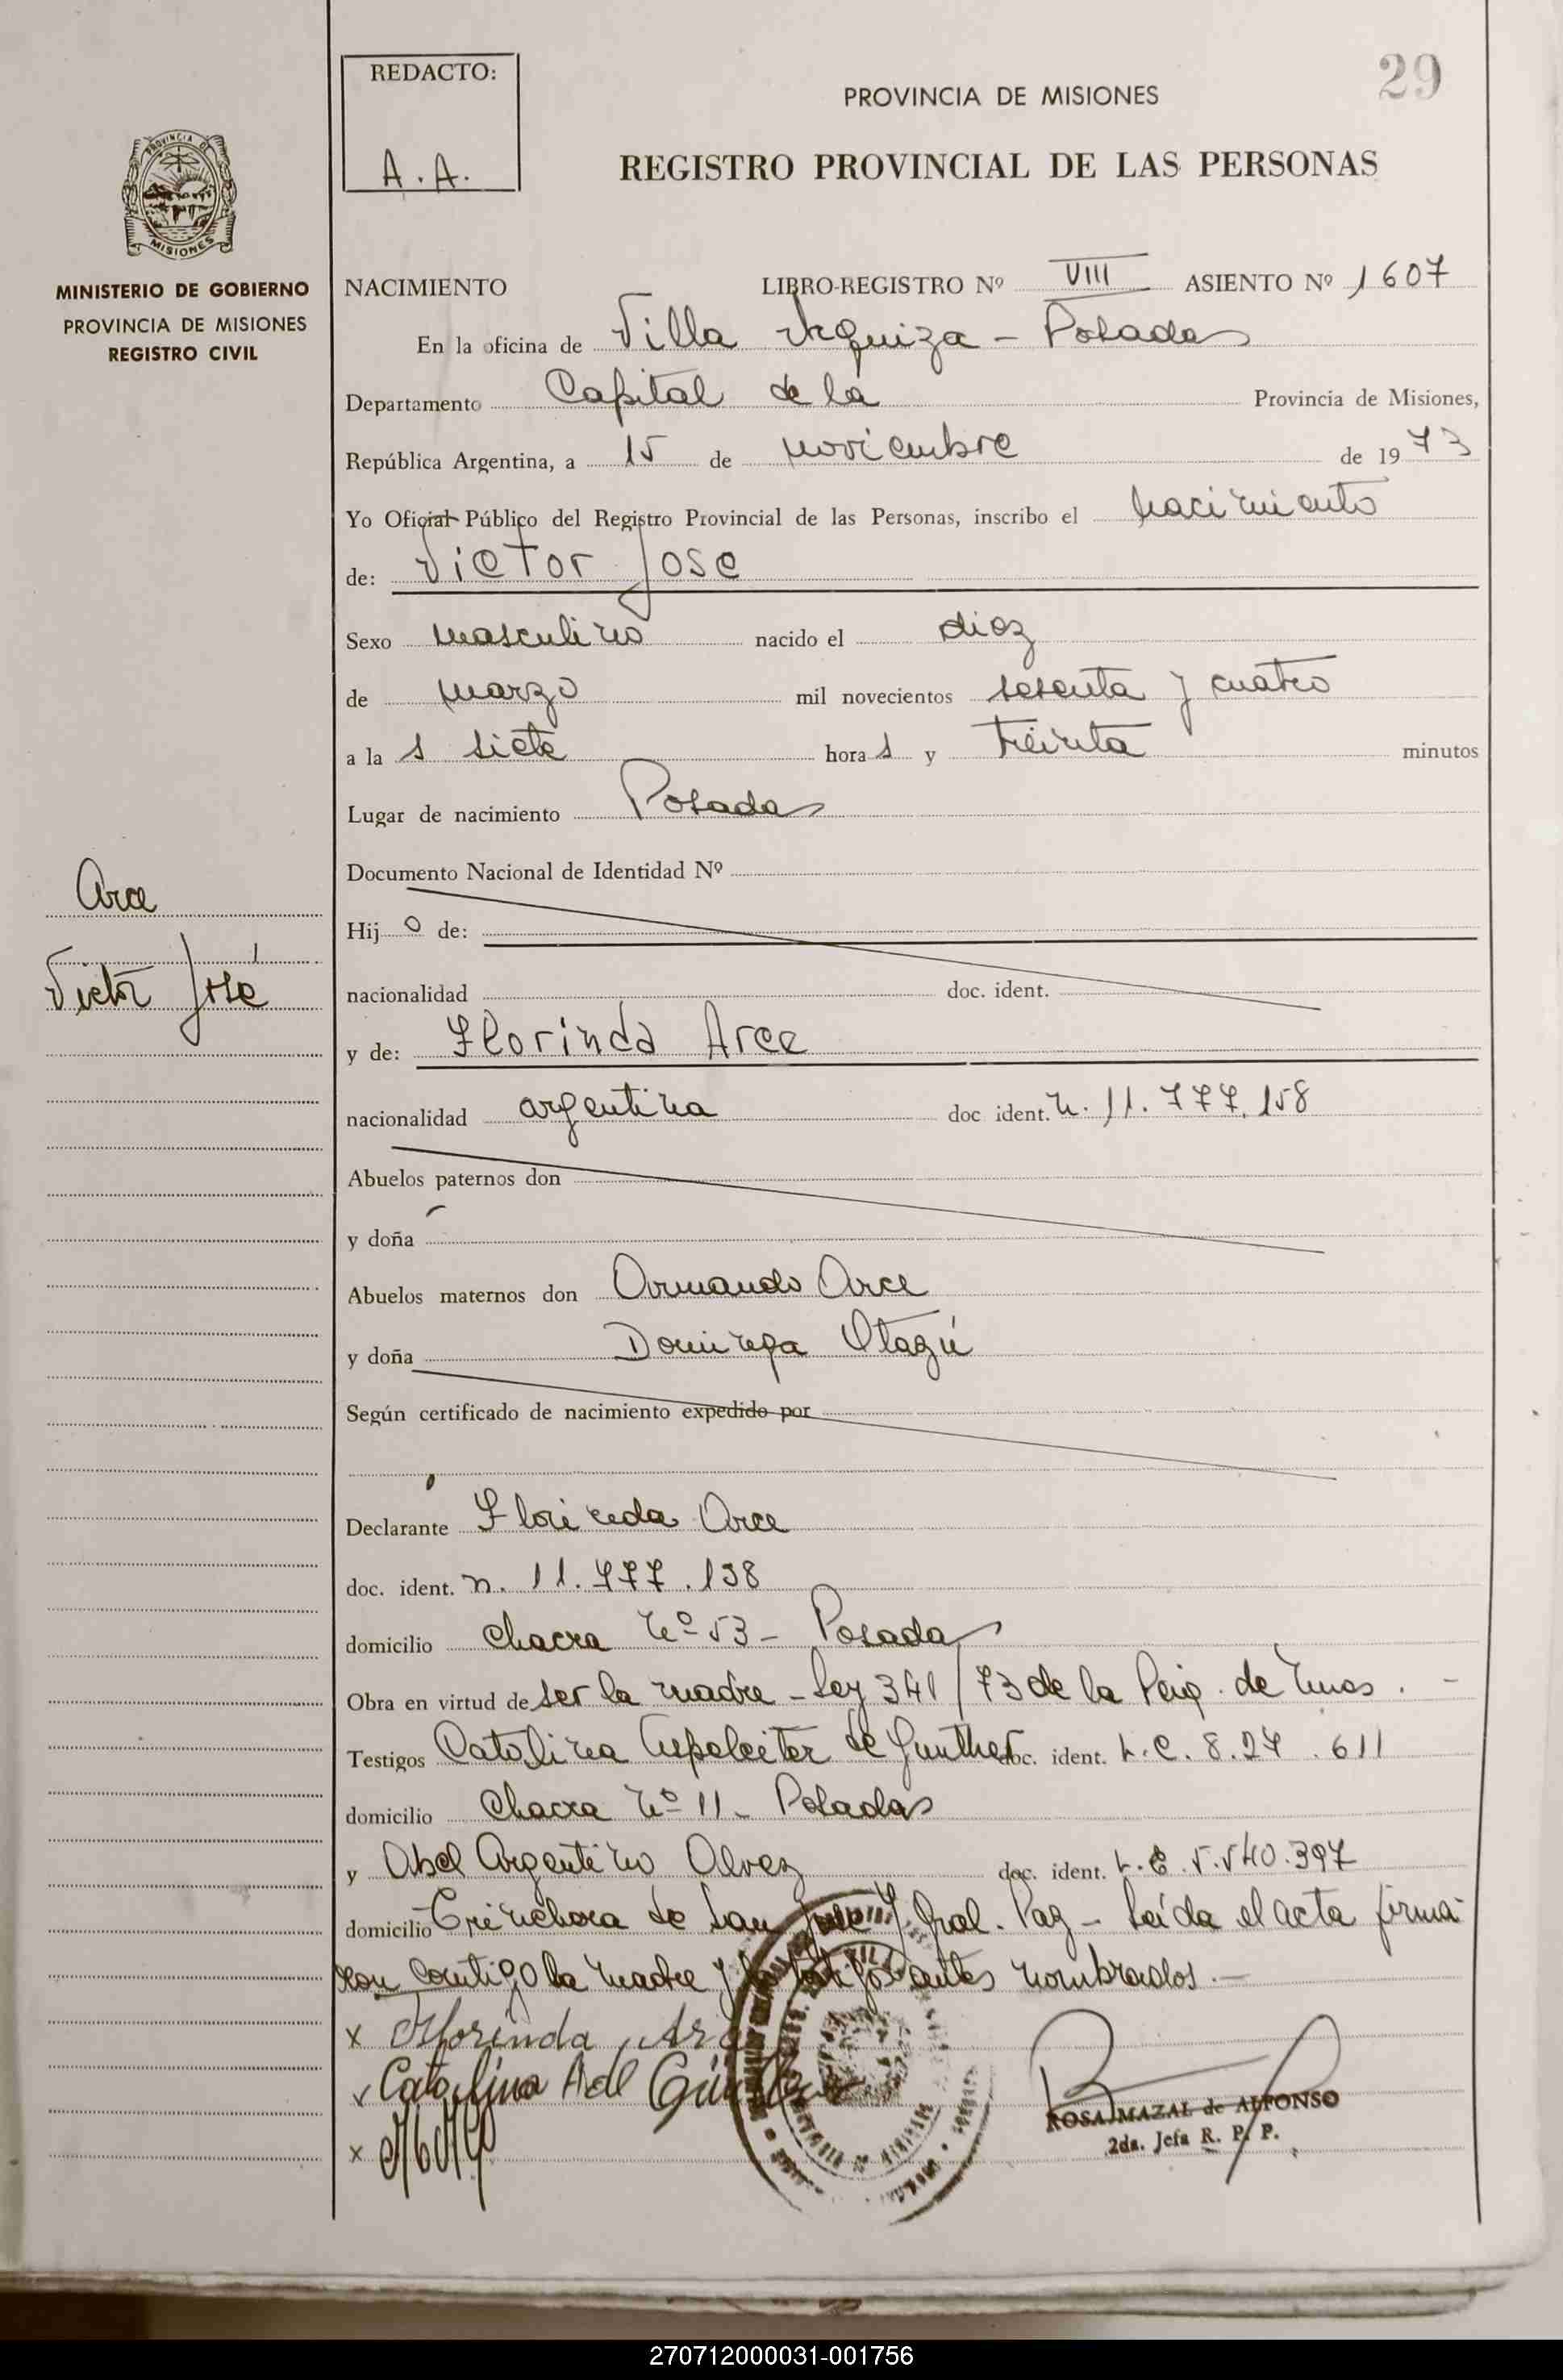 29
REDACTO:
A.A.
PROVINCIA DE MISIONES
REGISTRO PROVINCIAL DE LAS PERSONAS
PROVINCIA DE
MISIONES
MINISTERIO DE GOBIERNO
PROVINCIA DE MISIONES
REGISTRO CIVIL
NACIMIENTO LIBRO-REGISTRO Nº VIII ASIENTO Nº 1607
En la oficina de Villa Urquiza - Posadas
Departamento Capital de la Provincia de Misiones,
República Argentina, a 15 de noviembre de 1973
Yo Oficial Público del Registro Provincial de las Personas, inscribo el nacimiento
de: Victor Jose
Sexo masculino nacido el diez
de marzo mil novecientos sesenta y cuatro
a la s siete hora s y treinta minutos
Lugar de nacimiento Posadas
Documento Nacional de Identidad Nº
Arce
Hij o de:
Victor José
nacionalidad doc. ident.
y de: Florinda Arce
nacionalidad argentina doc ident. n. 11.777.158
Abuelos paternos don
y doña
Abuelos maternos don Armando Arce
y doña Dominga Otazú
Según certificado de nacimiento expedido por
Declarante Florinda Arce
doc. ident. n. 11.777.138
domicilio Chacra Nº 53 - Posadas
Obra en virtud de ser la madre - Ley 341/73 de la Pcia. de Mnes. -
Testigos Catalina de Gunther doc. ident. L.C. 8.27 .611
domicilio Chacra Nº 11 - Posadas
y Abel Argentino Alvez doc. ident. L.E. 5.540.397
domicilio Trinchera de San José y Gral. Paz - Leída el acta firma-
ron contigo la madre y los testigos antes nombrados. -
x Florinda Arce
x Catalina A de Günther
x
ROSA MAZAL de ALFONSO
2da. Jefa R. P. P.
270712000031-001756